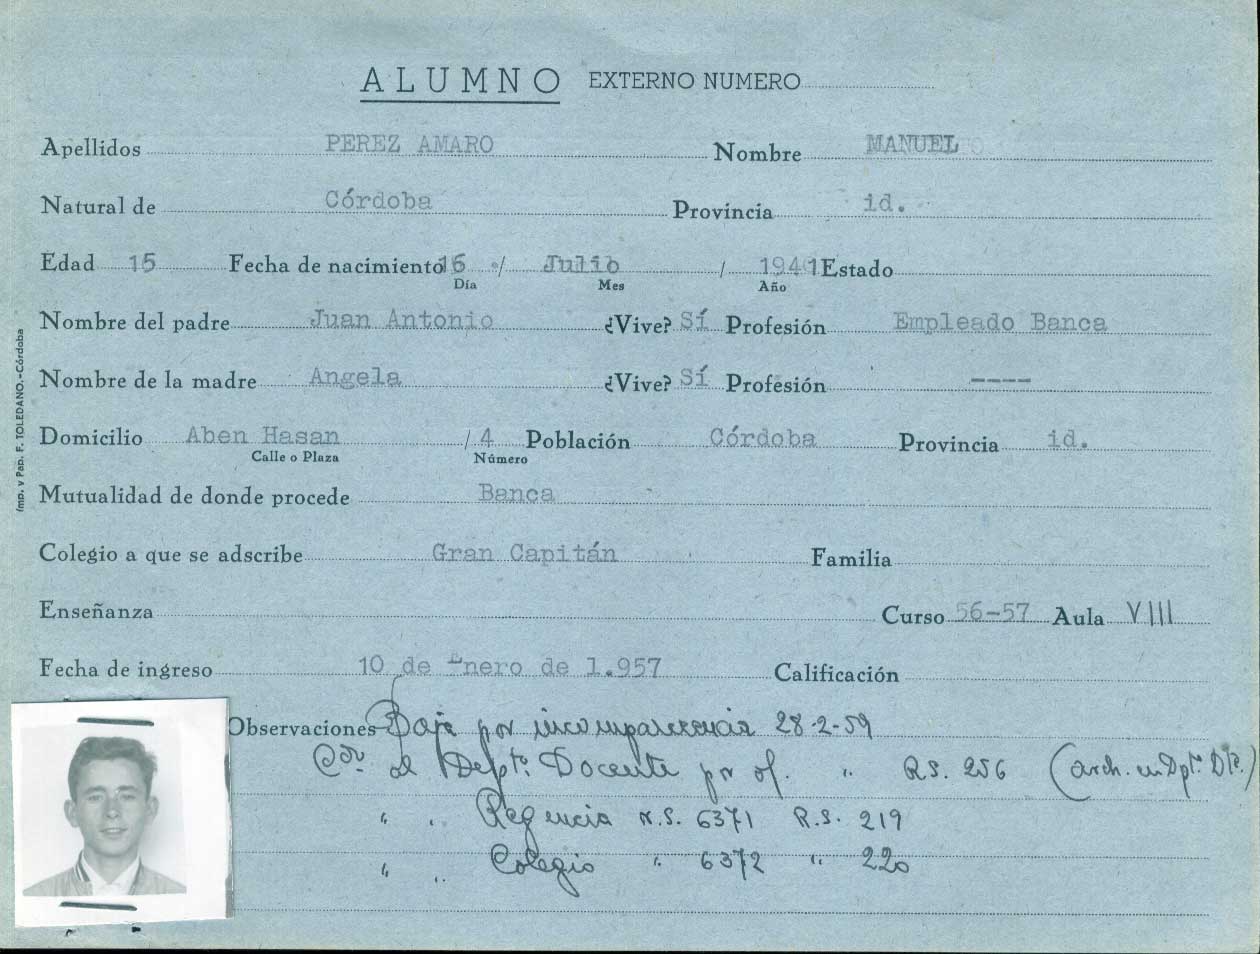 ALUMNO EXTERNO NUMERO
Apellidos PEREZ AMARO Nombre MANUEL
Natural de Córdoba Provincia id.
Edad 15 Fecha de nacimiento 16 / Julio / 1941 Estado
Día Mes Año
Nombre del padre Juan Antonio ¿Vive? Sí Profesión Empleado Banca
Nombre de la madre Angela ¿Vive? Sí Profesión ----
Domicilio Aben Hasan / 4 Población Córdoba Provincia id.
Calle o Plaza Número
Mutualidad de donde procede Banca
Colegio a que se adscribe Gran Capitán Familia
Enseñanza Curso 56-57 Aula VIII
Fecha de ingreso 10 de Enero de 1.957 Calificación
Observaciones Baja por incomparecencia 28-2-59
al Deptº. Docente por of. " R.S. 256 (arch. en Dptº. Dte.)
" " Regencia N.S. 6371 R.S. 219
" " Colegio " 6372 " 220
Imp. y Pap. F. TOLEDANO.-Córdoba